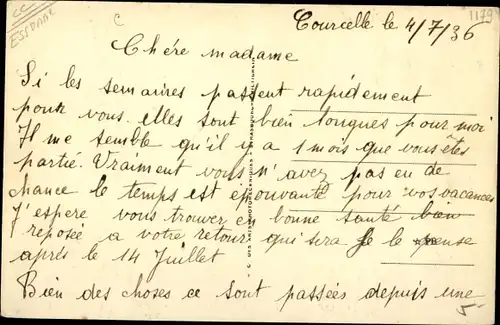 CC
ESSONNE
C
1179
Tourcelle le 4/7/36
Chére madame
Si les semaires passent rapidement
pour vous elles sont bien longues pour moi
Il me semble qu'il y a 1 mois que vous êtes
partie. Vraiment vous n'avez pas eu de
chance le temps est épouvanté pour vos vacances
J'espere vous trouver en bonne santé bien
reposée a votre retour qui sera je le pense
aprés le 14 Juillet
Bien des choses ce sont passées depuis une